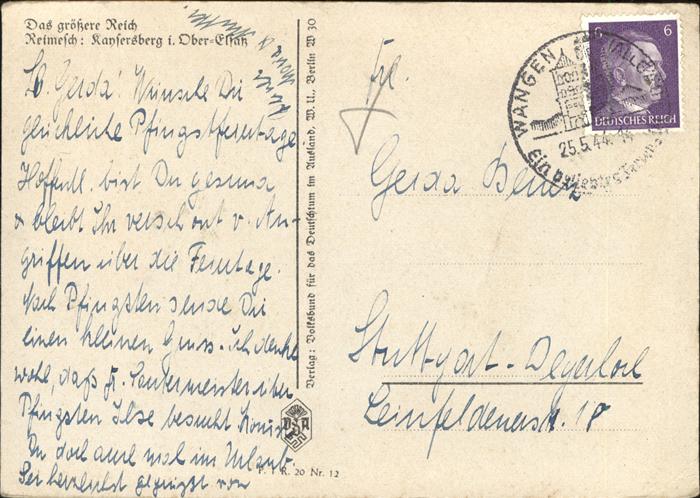 Das größere Reich
Reimesch: Kaysersberg i. Ober-Elsaß
Lb. Gerda! Wünsche Dir
glückliche Pfingstfeiertage
Hoffentl. bist Du gesund
& bleibt Ihr verschont v. An-
griffen über die Feiertage.
Nach Pfingsten sende Dir
einen kleinen Gruss. Ich denke
wohl, daß Fr. über
Pfingsten Ilse besucht. Komm
Du doch auch mal im Urlaub.
Sei herzlichst gegrüsst von
Verlag: Volksbund für das Deutschtum im Ausland, W. U., Berlin W 30
VDA
F. I R. 20 Nr. 12
Frl.
Gerda Benez
Stuttgart-Degerloch
Leinfeldenerstr. 18
6 6
DEUTSCHES REICH
WANGEN (ALLGÄU)
25.5.44
Ein beliebtes